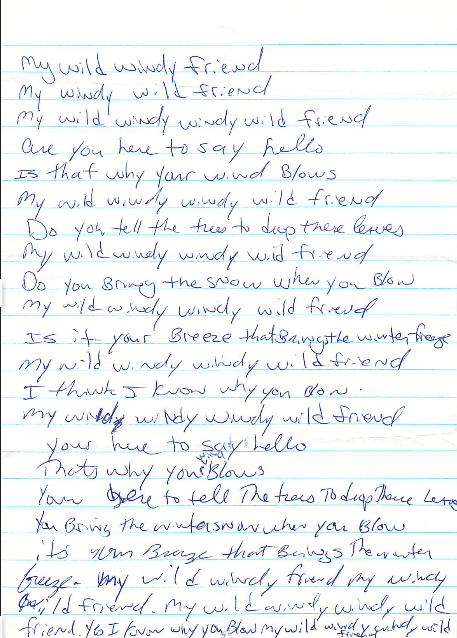 My wild windy friend
My windy wild friend
My wild windy windy wild friend
are you here to say hello
Is that why your wind Blows
My wild windy windy wild friend
Do you tell the trees to drop there leaves
My wild windy windy wild friend
Do you Bring the snow when you Blow
My wild windy windy wild friend
Is it your Breeze that Bring the winter freeze
My wild windy windy wild friend
I think I know why you Blow.
My windy windy windy wild friend
your here to say hello
Thats why your wind Blows
Your here to tell The trees To drop There leaves
You Bring the winter snow when you Blow
it's your Breeze that Brings The winter
freeze. My wild windy friend my windy
wild friend. My wild windy windy wild
friend. Yes I know why you Blow my wild windy windy wild